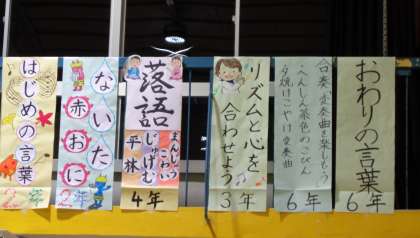 はじめの言葉
2年
ないた
赤おに
2年
落語
まんじゅうこわい
じゅげむ
平林
4年
リズムと心を
合わせよう
3年
合奏 変奏曲を楽しもう
へんしん茶色のこびん
夕焼けこやけ変奏曲
6年
おわりの言葉
6年